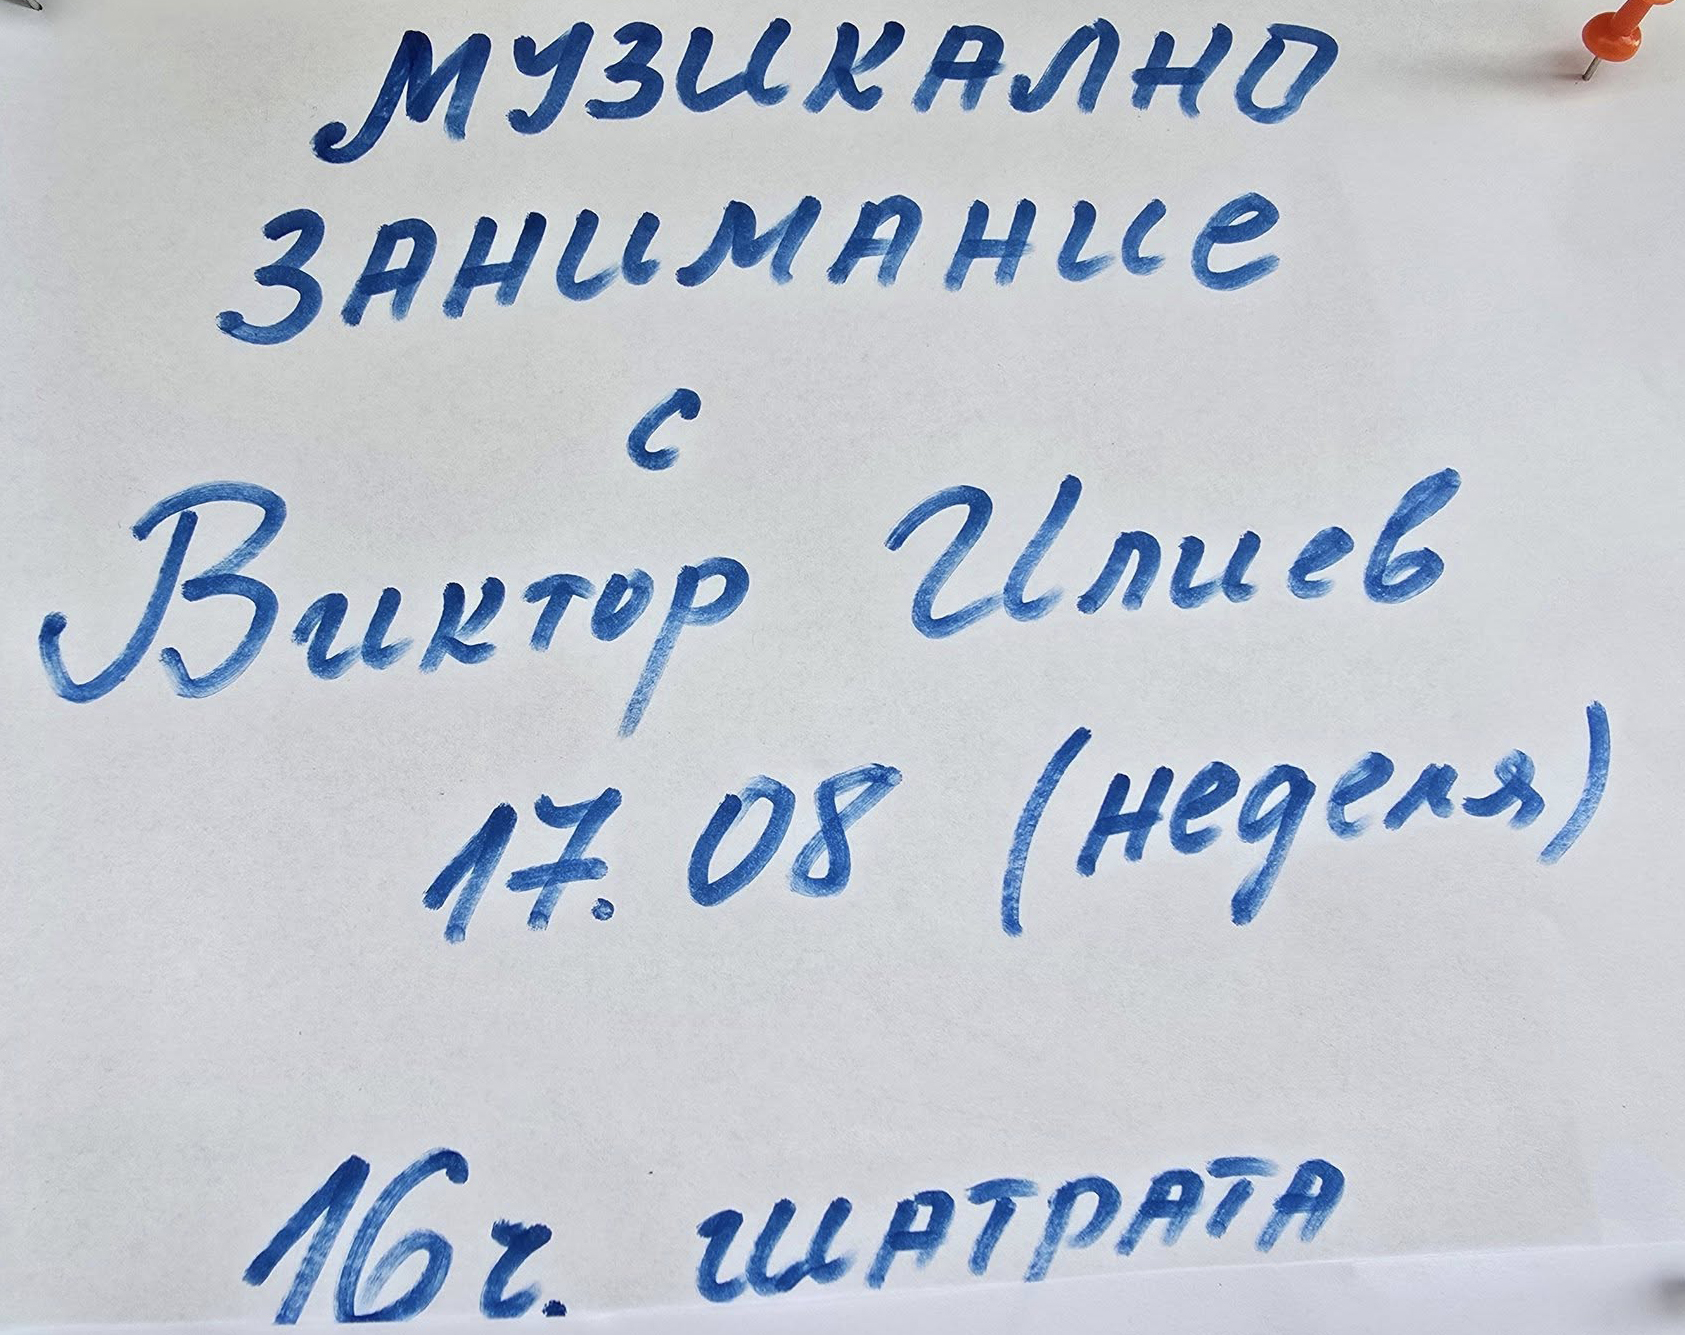 МУЗИКАЛНО
ЗАНИМАНИЕ
с
Виктор Илиев
17.08 (неделя)
16ч. ШАТРАТА